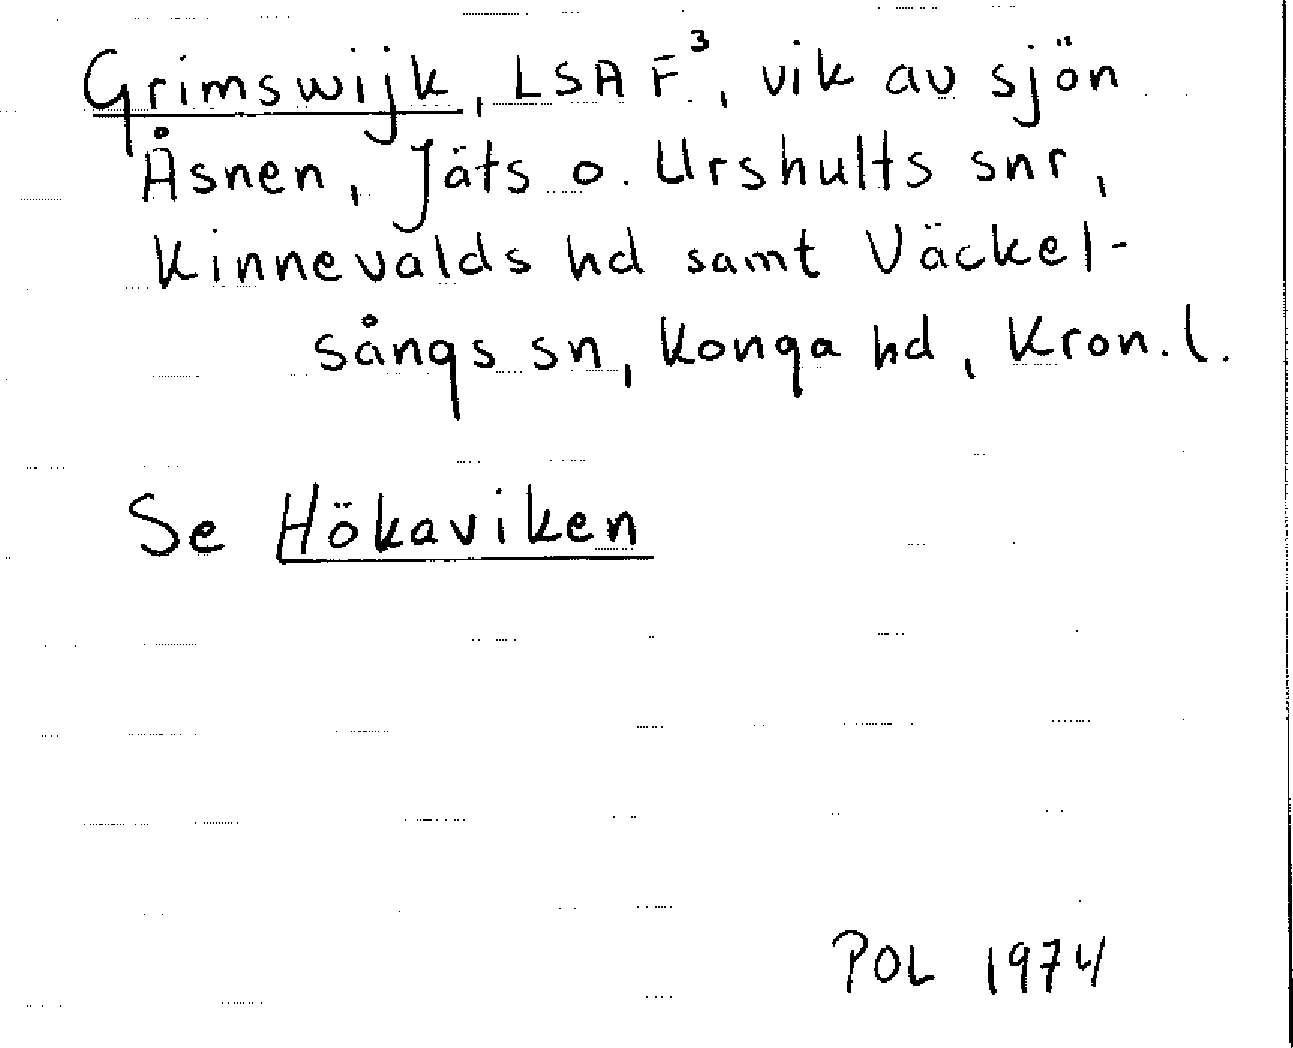 Grimswijk, LSA F³, vik av sjön
Åsnen, Jäts o. Urshults snr,
Kinnevalds hd samt Väckel-
sångs sn, Konga hd, Kron. l.
Se Hökaviken
POL 1974